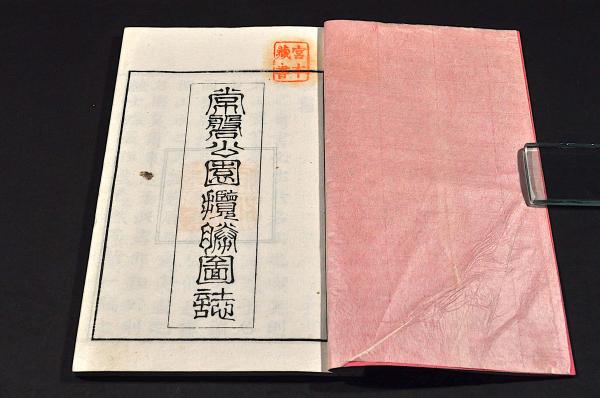 常磐公園攬勝圖誌
宮本
藏書